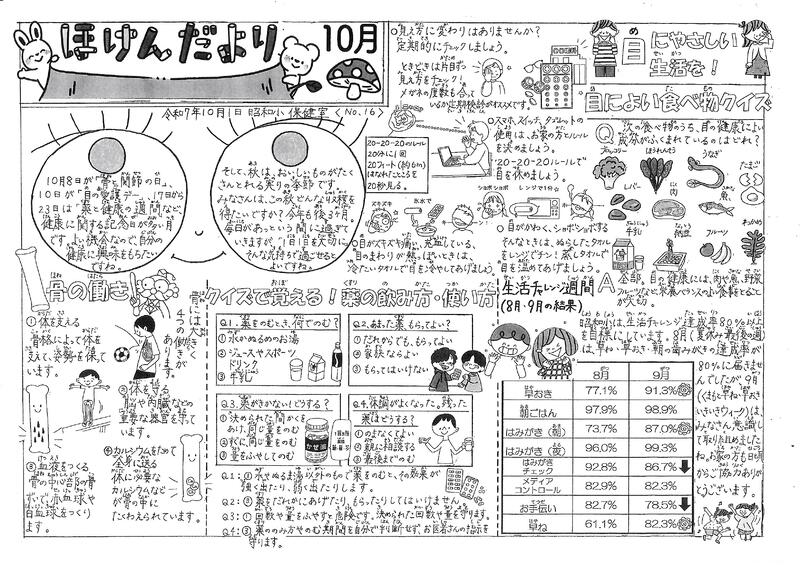 ほけんだより
10月
令和7年10月1日 昭和小 保健室 <No.16>
10月8日が「骨と関節の日」、
10日が「目の愛護デー」、17日から
23日は「薬と健康の週間」など、
健康に関する記念日が多い月
です。よい機会なので、自分の
健康に興味をもちたい
ですね。
そして、秋は、おいしいものがたく
さんとれる実りの季節です。
みなさんは、この秋、どんな収穫を
得たいですか?今年も後3ヶ月。
毎日があっという間に過ぎて
いきますが、1日1日を大切に、
そんな気持ちで過ごせると
よいですね。
○見え方に変わりはありませんか?
定期的にチェックしましょう。
ときどきは片目ずつ
見え方をチェック!
メガネの度数も合って
いるか定期検診がオススメです。
20-20-20のルール
20分に1回
20フィート(約6m)
はなれたところを
20秒見る。
○スマホ、スイッチ、タブレットの
使用は、お家の方とルール
を決めましょう。
"20-20-20ルール"で
目を休めましょう。
ズキズキ
氷水で
ヒンヤリ
○目がズキズキ痛い、充血している、
目のまわりが熱っぽいときは、
冷たいタオルで目を冷やしてあげましょう
ショボショボ
レンジで1分
○目がかわく、ショボショボする
そんなときは、ぬらしたタオル
をレンジでチン!蒸しタオルで
目を温めてあげましょう。
目にやさしい
生活を!
目によい食べ物クイズ
Q 次の食べ物のうち、目の健康によい
成分がふくまれているのはどれ?
ブロッコリー
ほうれんそう
うなぎ
たまご
レバー
肉
魚
わかめ
牛乳
納豆
フルーツ
A 全部。目の健康には、肉や魚、野菜、
フルーツなど栄養バランスのよい食事をとること
が大切。
骨の働き
骨には大きく
4つの働きが
あります。
①体を支える
骨格によって体を
支えて、姿勢を保って
います。
②体を守る
脳や内臓などの
重要な器官を守って
います。
③血液をつくる
骨の中心部の骨
ずいで、赤血球や
白血球をつくり
ます。
④カルシウムをためて
全身に送る
体に必要な
カルシウムなど
が骨の中に
たくわえられています。
クイズで覚える!薬の飲み方・使い方
Q1.薬をのむとき、何でのむ?
①水かぬるめのお湯
②ジュースやスポーツ
ドリンク
③牛乳
Q2.あまった薬、もらってよい?
①だれからでも、もらってよい
②家族ならよい
③もらってはいけない
Q3.薬がきかない!どうする?
①決められた間かくを
あけ、同じ量をのむ
②すぐに同じ量をのむ
③量をふやしてのむ
かぜ
Q4.体調がよくなった。残った
薬はどうする?
①のまなくてよい
②親に相談する
③最後までのむ
Q1:①水やぬるま湯以外のもので薬をのむと、その効果が
強く出たり、弱く出たりします。
Q2:③薬をだれかにあげたり、もらったりしてはいけません
Q3:①回数や量をふやすと危険です。決められた回数や量を守ります。
Q4:③薬ののみ方やのむ期間を自分で判断せず、お医者さんの指示を
守ります。
生活チャレンジ週間
(8月・9月の結果)
昭和小は、生活チャレンジ達成率80%以上
を目標にしています。8月(夏休み最後の週)
は、早ね・早おき・朝の歯みがきの達成率が
80%に届きませ
んでしたが、9月
いきいきウィーク)は、
みなさん意識し
て取り組めました
ね。お家の方も日頃
からご協力ありが
とうございます。
8月 9月
早おき 77.1% 91.3%
朝ごはん 97.9% 98.9%
はみがき(朝) 73.7% 87.0%
はみがき(夜) 96.0% 99.3%
はみがきチェック 92.8% 86.7%
メディアコントロール 82.9% 82.3%
お手伝い 82.7% 78.5%
早ね 61.1% 82.3%